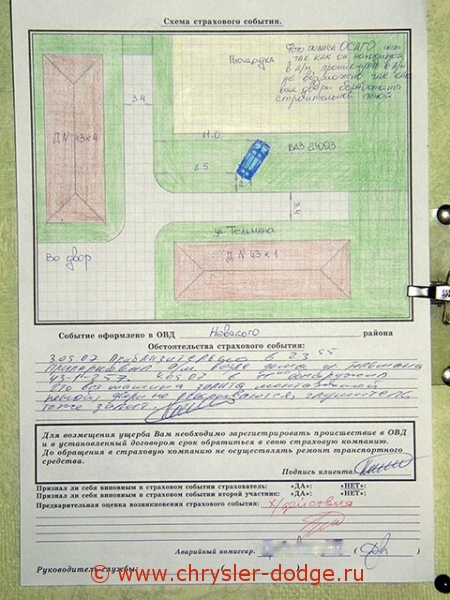 Схема страхового события.
Площадка
Фото полиса ОСАГО нет
так как он находится
в а/м, проникнуть в а/м
не возможно так как
все двери обработаны
строительной пеной
3.4
Д №43 к 4
11.0
ВАЗ 21093
2.5
3.4
ул Тельмана
Д №43 к 1
Во двор
Событие оформлено в ОВД Невского района
Обстоятельства страхового события:
3.05.07 в 23 55
а/м возле дома ул Тельмана
43-1 4.05.07 в обнаружено
что вся машина залита монтажной
пеной, двери не открываются, глушитель
тоже залит
Для возмещения ущерба Вам необходимо зарегистрировать происшествие в ОВД
и в установленный договором срок обратиться в свою страховую компанию.
До обращения в страховую компанию не осуществлять ремонт транспортного
средства.
Подпись клиента
Признал ли себя виновным в страховом событии страхователь: «ДА»: «НЕТ»:
Признал ли себя виновным в страховом событии второй участник: «ДА»: «НЕТ»:
Предварительная оценка возникновения страхового события: действия
Аварийный комиссар. ( )
Руководитель службы: ( )
© www.chrysler-dodge.ru